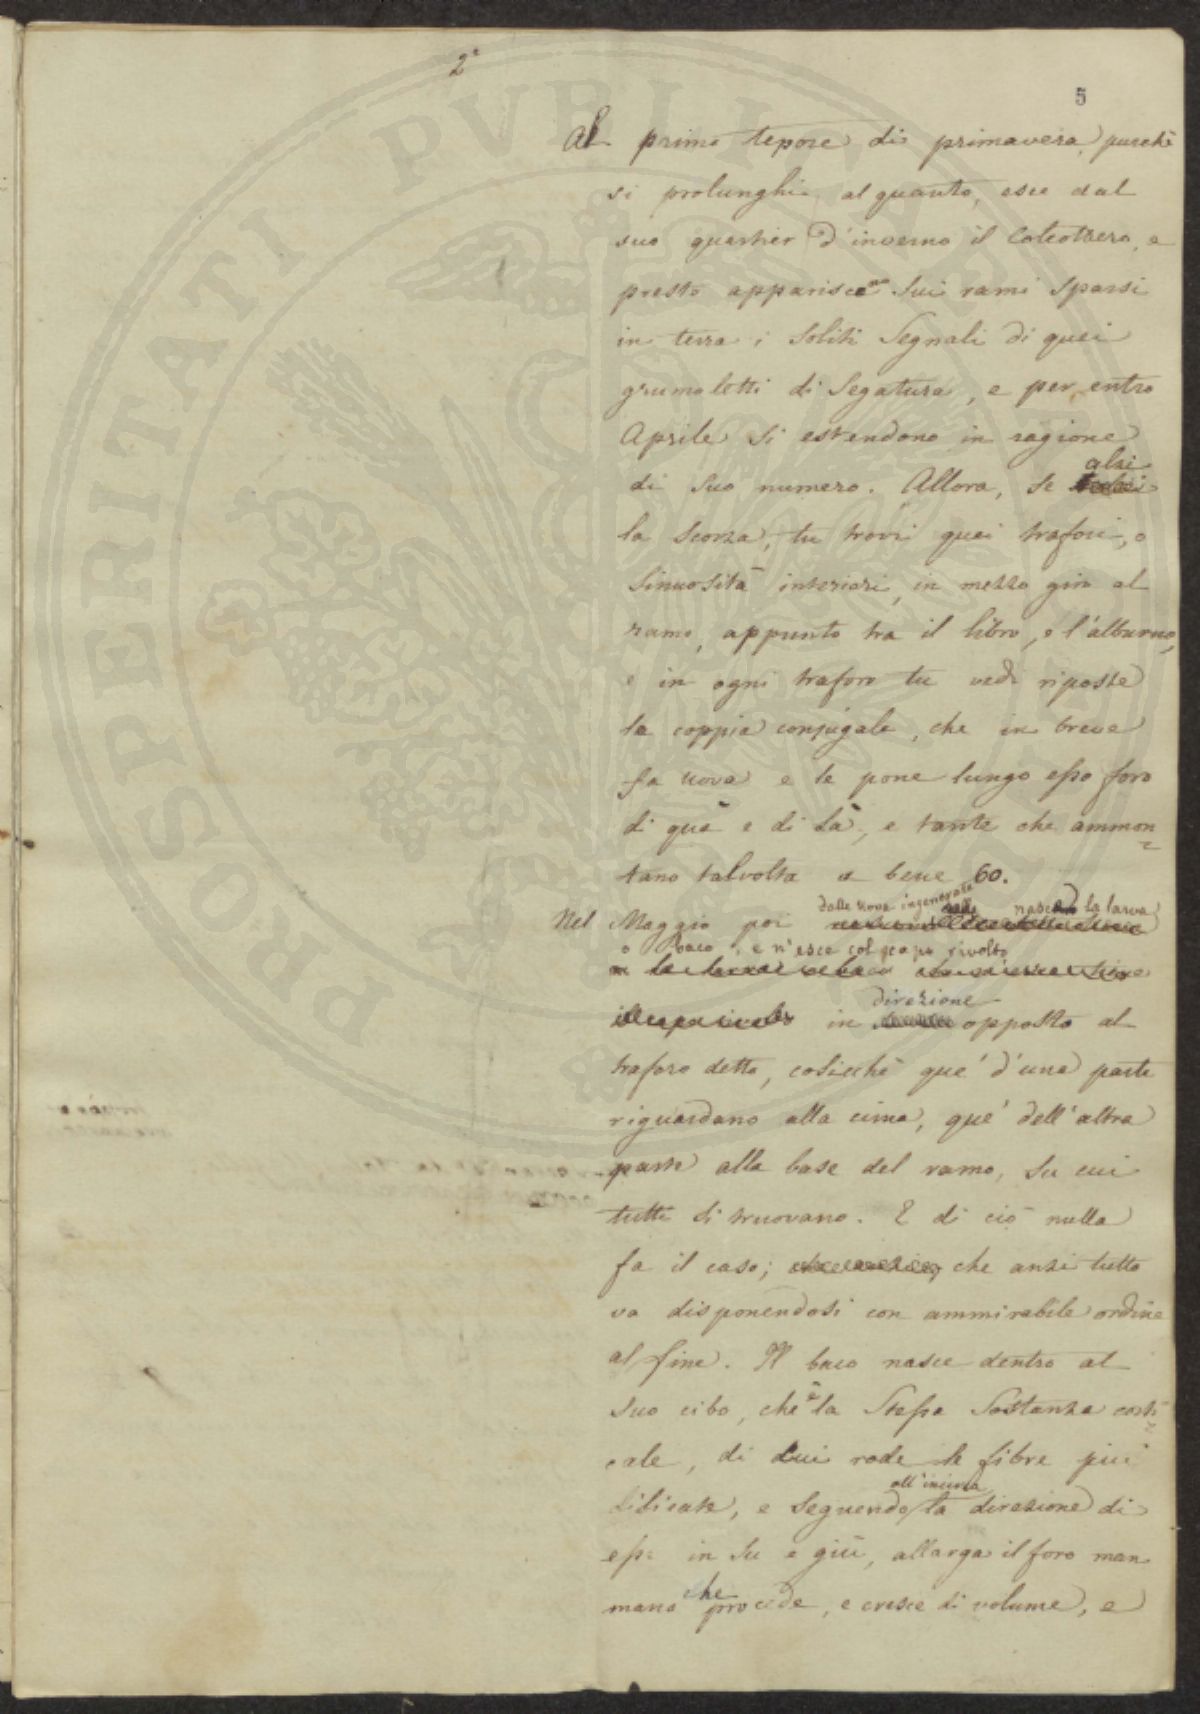 2ª
5
Al primo tepore di primavera, purchè
si prolunghi alquanto, esce dal
suo quartier d'inverno il Coleottero, e
presto appariscono sui rami sparsi
in terra i soliti segnali di quei
grumoletti di segatura, e per entro
Aprile si estendono in ragione
di suo numero. Allora, se alzi
la scorza, tu trovi quei trafori, o
sinuosità interiori, in mezzo giro al
ramo, appunto tra il libro, e l'alburno,
e in ogni traforo tu vedi riposta
la coppia conjugale, che in breve
fa uova e le pone lungo esso foro
di quà e di là, e tante che ammon=
tano talvolta a bene 60.
Nel Maggio poi dalle uova ingenerate nasce la larva
o baco, e n'esce col capo rivolto
in direzione opposto al
traforo detto, cosicchè que' d'una parte
riguardano alla cima, que' dell'altra
parte alla base del ramo, su cui
tutti si truovano. E di ciò nulla
fa il caso; che anzi tutto
va disponendosi con ammirabile ordine
al fine. Il baco nasce dentro al
suo cibo, che è la stessa sostanza corti=
cale, di cui rode le fibre più
dilicate, e seguendo all'incirca la direzione di
esse in su e giù, allarga il foro man
mano che procede, e cresce di volume, e
PROSPERITATI PVBLICAE